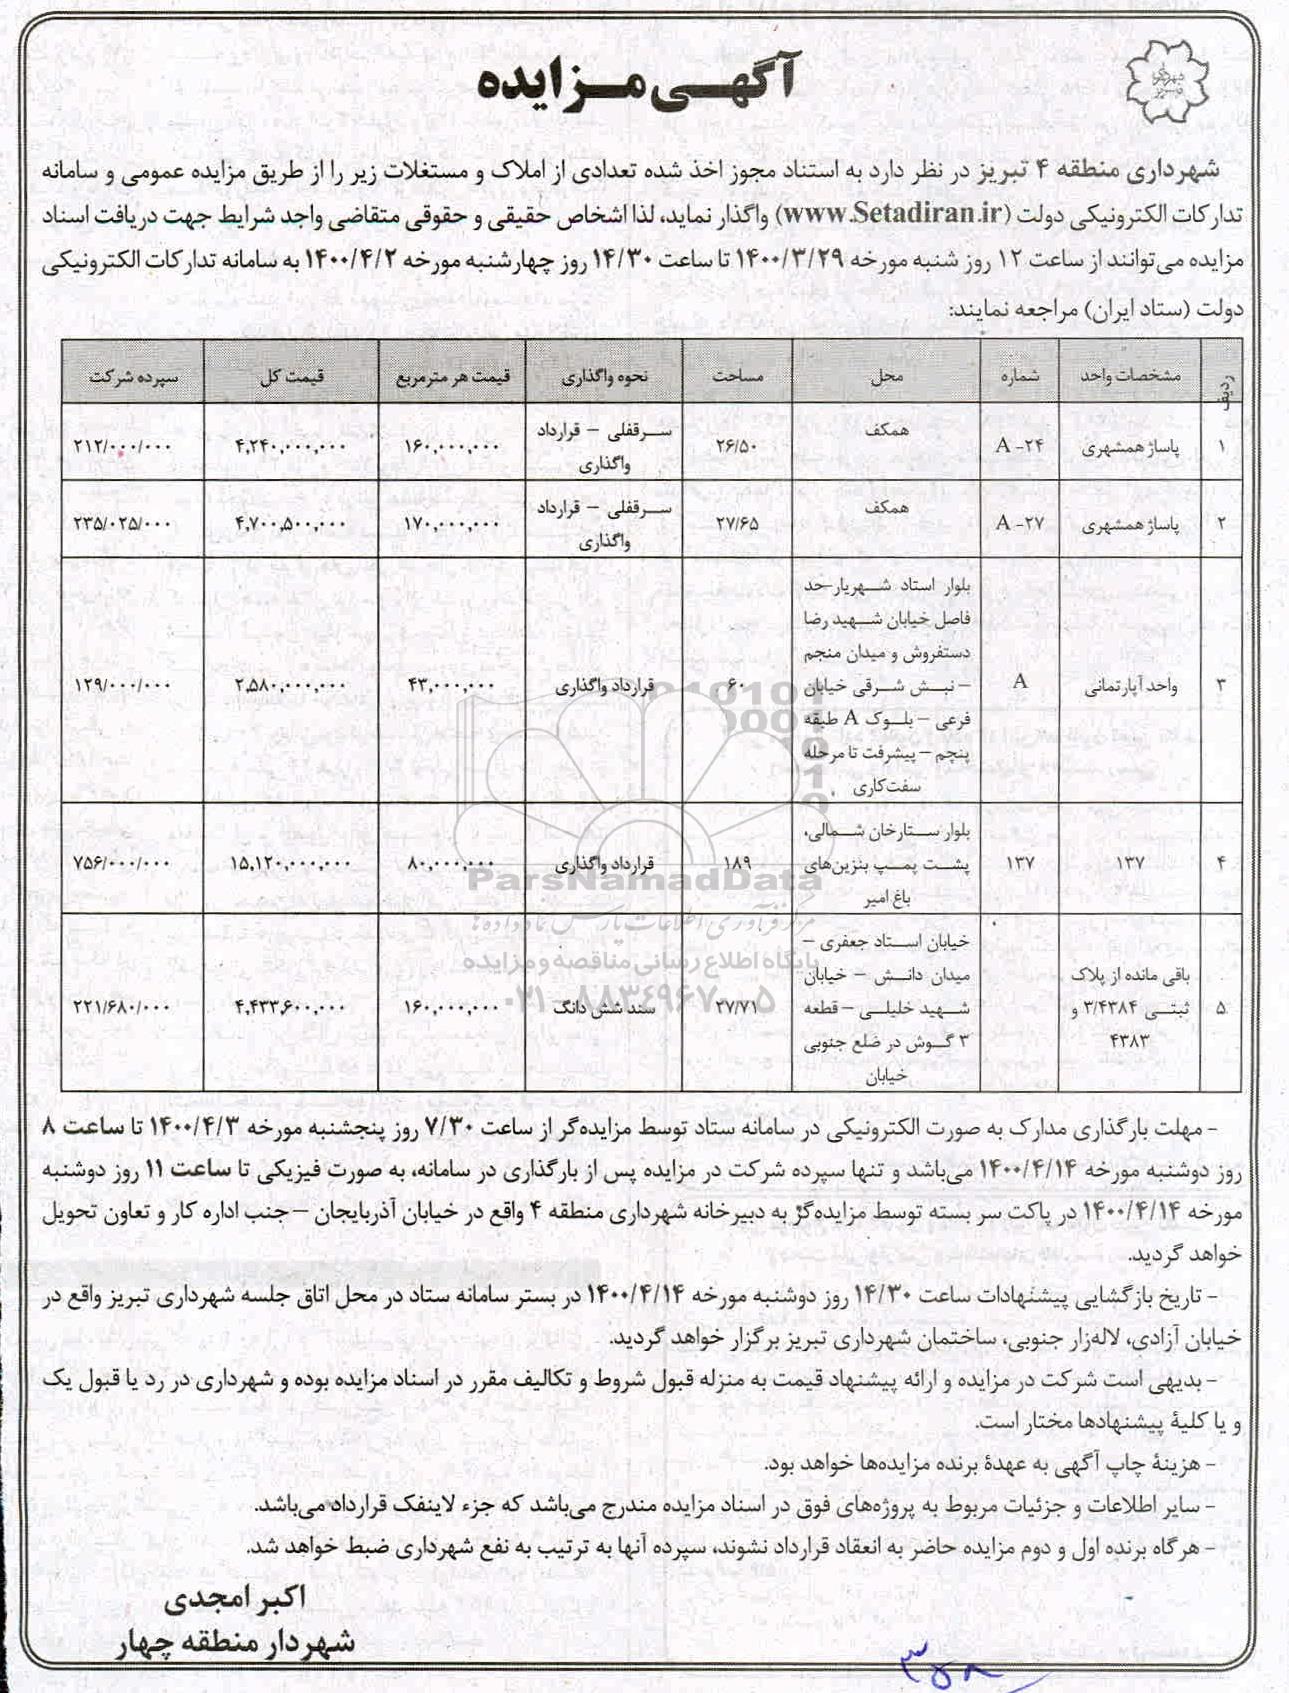 آگهی مزایده
شهرداری منطقه ۴ تبریز در نظر دارد به استناد مجوز اخذ شده تعدادی از املاک و مستغلات زیر را از طریق مزایده عمومی و سامانه
تدارکات الکترونیکی دولت (www.Setadiran.ir) واگذار نماید، لذا اشخاص حقیقی و حقوقی متقاضی واجد شرایط جهت دریافت اسناد
مزایده می‌توانند از ساعت ۱۲ روز شنبه مورخه ۱۴۰۰/۳/۲۹ تا ساعت ۱۴/۳۰ روز چهارشنبه مورخه ۱۴۰۰/۴/۲ به سامانه تدارکات الکترونیکی
دولت (ستاد ایران) مراجعه نمایند:
ردیف مشخصات واحد شماره محل مساحت نحوه واگذاری قیمت هر مترمربع قیمت کل سپرده شرکت
۱ پاساژ همشهری A -۲۴ همکف ۲۶/۵۰ سرقفلی – قرارداد واگذاری ۱۶۰,۰۰۰,۰۰۰ ۴,۲۴۰,۰۰۰,۰۰۰ ۲۱۲/۰۰۰/۰۰۰
۲ پاساژ همشهری A -۲۷ همکف ۲۷/۶۵ سرقفلی – قرارداد واگذاری ۱۷۰,۰۰۰,۰۰۰ ۴,۷۰۰,۵۰۰,۰۰۰ ۲۳۵/۰۲۵/۰۰۰
۳ واحد آپارتمانی A بلوار استاد شهریار-حد
فاصل خیابان شهید رضا
دستفروش و میدان منجم
– نبش شرقی خیابان
فرعی – بلوک A طبقه
پنجم – پیشرفت تا مرحله
سفت‌کاری ۶۰ قرارداد واگذاری ۴۳,۰۰۰,۰۰۰ ۲,۵۸۰,۰۰۰,۰۰۰ ۱۲۹/۰۰۰/۰۰۰
۴ ۱۳۷ ۱۳۷ بلوار ستارخان شمالی،
پشت پمپ بنزین‌های
باغ امیر ۱۸۹ قرارداد واگذاری ۸۰,۰۰۰,۰۰۰ ۱۵,۱۲۰,۰۰۰,۰۰۰ ۷۵۶/۰۰۰/۰۰۰
۵ باقی مانده از پلاک
ثبتی ۳/۴۳۸۴ و
۴۳۸۳ خیابان استاد جعفری –
میدان دانش – خیابان
شهید خلیلی – قطعه
۳ گوش در ضلع جنوبی
خیابان ۲۷/۷۱ سند شش دانگ ۱۶۰,۰۰۰,۰۰۰ ۴,۴۳۳,۶۰۰,۰۰۰ ۲۲۱/۶۸۰/۰۰۰
ParsNamadData
مرکز فرآوری اطلاعات پارس نماد داده‌ها
پایگاه اطلاع رسانی مناقصه و مزایده
۰۲۱-۸۸۳۴۹۶۷۰-۵
- مهلت بارگذاری مدارک به صورت الکترونیکی در سامانه ستاد توسط مزایده‌گر از ساعت ۷/۳۰ روز پنجشنبه مورخه ۱۴۰۰/۴/۳ تا ساعت ۸
روز دوشنبه مورخه ۱۴۰۰/۴/۱۴ می‌باشد و تنها سپرده شرکت در مزایده پس از بارگذاری در سامانه، به صورت فیزیکی تا ساعت ۱۱ روز دوشنبه
مورخه ۱۴۰۰/۴/۱۴ در پاکت سر بسته توسط مزایده‌گر به دبیرخانه شهرداری منطقه ۴ واقع در خیابان آذربایجان – جنب اداره کار و تعاون تحویل
خواهد گردید.
- تاریخ بازگشایی پیشنهادات ساعت ۱۴/۳۰ روز دوشنبه مورخه ۱۴۰۰/۴/۱۴ در بستر سامانه ستاد در محل اتاق جلسه شهرداری تبریز واقع در
خیابان آزادی، لاله‌زار جنوبی، ساختمان شهرداری تبریز برگزار خواهد گردید.
- بدیهی است شرکت در مزایده و ارائه پیشنهاد قیمت به منزله قبول شروط و تکالیف مقرر در اسناد مزایده بوده و شهرداری در رد یا قبول یک
و یا کلیهٔ پیشنهادها مختار است.
- هزینهٔ چاپ آگهی به عهدهٔ برنده مزایده‌ها خواهد بود.
- سایر اطلاعات و جزئیات مربوط به پروژه‌های فوق در اسناد مزایده مندرج می‌باشد که جزء لاینفک قرارداد می‌باشد.
- هرگاه برنده اول و دوم مزایده حاضر به انعقاد قرارداد نشوند، سپرده آنها به ترتیب به نفع شهرداری ضبط خواهد شد.
اکبر امجدی
شهردار منطقه چهار